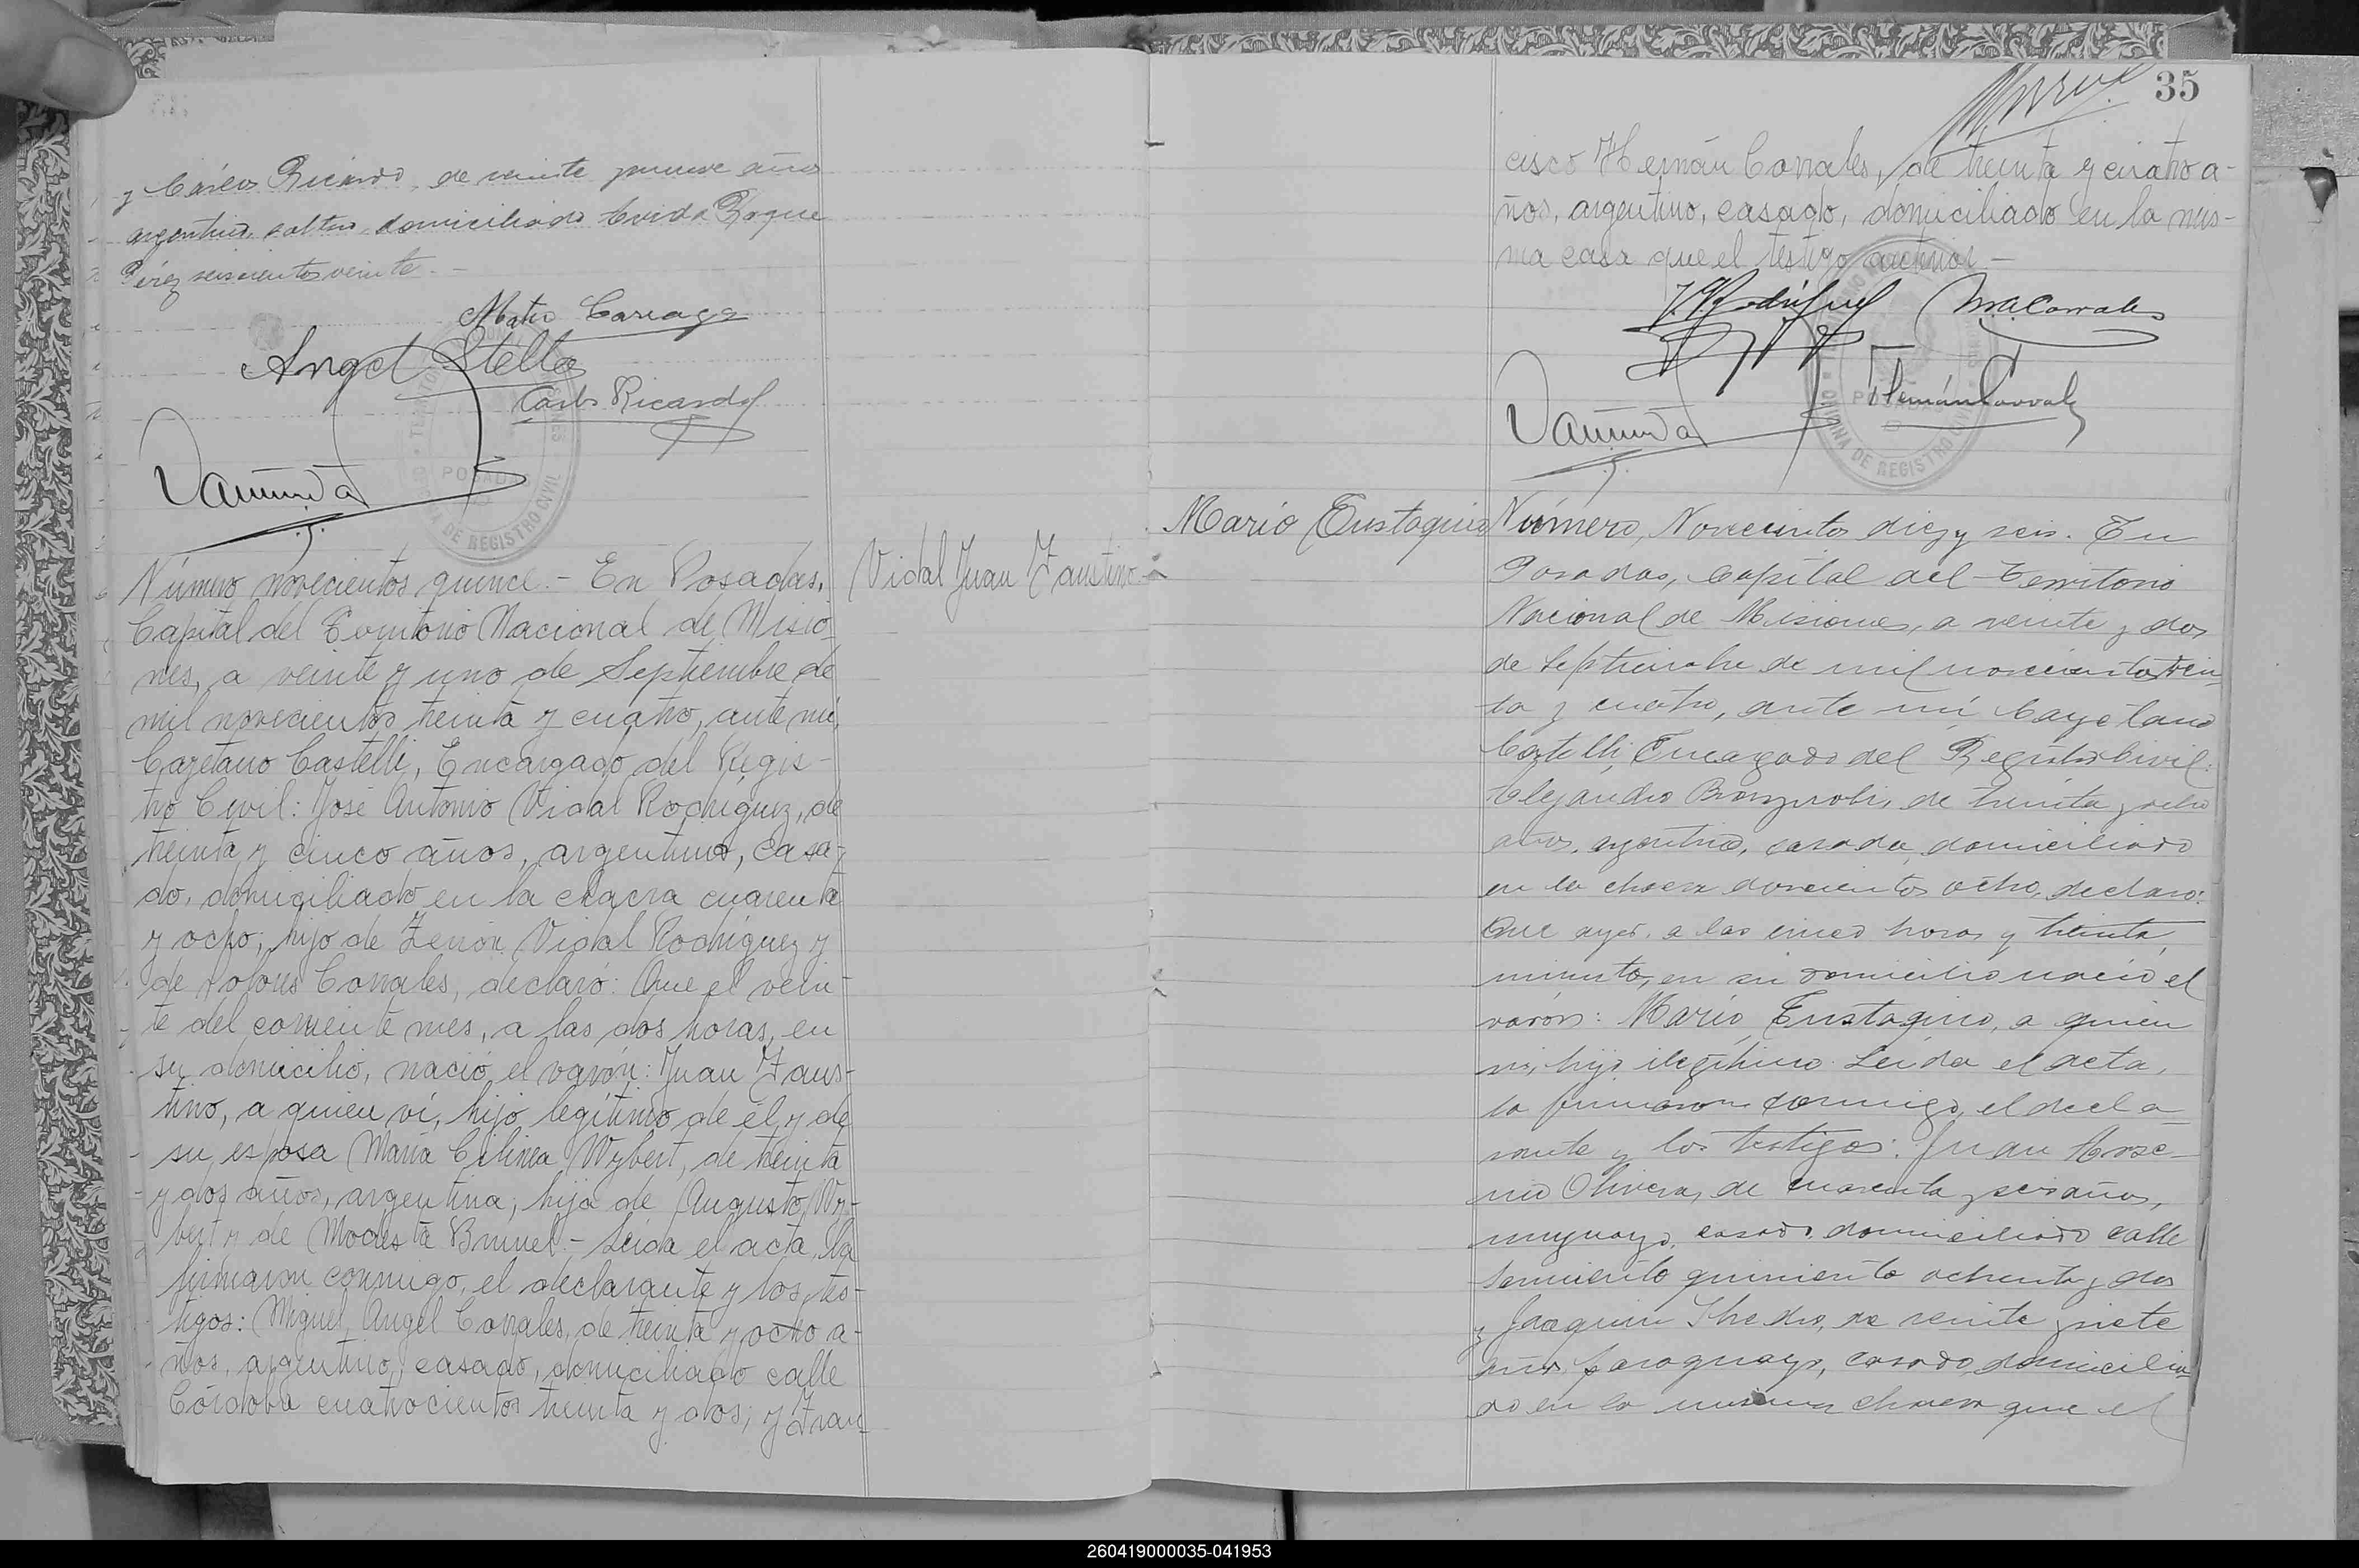 y Cárlos Ricardo, de veinte y nueve años
argentino, soltero, domiciliado Avenida Roque
Pérez seiscientos veinte.-
Mateo Careaga
Angel Stella
Carlos Ricardo
POSADAS
DE REGISTRO CIVIL
Número novecientos quince.- En Posadas,
Vidal Juan Faustino
Capital del Territorio Nacional de Misio-
nes, a veinte y uno de Septiembre de
mil novecientos treinta y cuatro, ante mí,
Cayetano Castelli, Encargado del Regis-
tro Civil: José Antonio Vidal Rodríguez, de
treinta y cinco años, argentino, casa-
do, domiciliado en la chacra cuarenta
y ocho; hijo de Zenón Vidal Rodríguez y
de Dolores Corrales, declaró: Que el vein-
te del corriente mes, a las dos horas, en
su domicilio, nació el varón: Juan Faus-
tino, a quien ví, hijo legítimo de él y de
su esposa María Celinea Wybert, de treinta
y dos años, argentina, hija de Augusto Wy-
bert y de Modesta Brunel.- Leída el acta, la
firmaron conmigo, el declarante y los tes-
tigos: Miguel Angel Corrales, de treinta y ocho a-
ños, argentino, casado, domiciliado calle
Córdoba cuatrocientos treinta y dos; y Fran-
35
cisco Hernán Corrales, de treinta y cuatro a-
ños, argentino, casado, domiciliado en la mis-
ma casa que el testigo anterior.-
J. V. Rodríguez
M. A. Corrales
F. Hernán Corrales
POSADAS
OFICINA DE REGISTRO CIVIL
Mario Eustaquio
Número, Novecientos diez y seis. En
Posadas, Capital del Territorio
Nacional de Misiones, a veinte y dos
de Septiembre de mil novecientos trein-
ta y cuatro, ante mí Cayetano
Castelli, Encargado del Registro Civil:
Alejandro, de treinta y ocho
años, argentino, casado, domiciliado
en la chacra doscientos ocho, declaró:
Que ayer, a las cinco horas y treinta
minutos, en su domicilio nació el
varón: Mario Eustaquio, a quien
ví, hijo ilegítimo. Leída el acta,
la firmaron conmigo, el decla-
rante y los testigos: Juan
Olivera, de cuarenta y seis años,
uruguayo, casado, domiciliado calle
Sarmiento quinientos ochenta y dos
y Joaquin, de veinte y siete
años, paraguayo, casado, domicilia-
do en la misma chacra que el
260419000035-041953